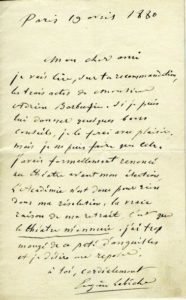 Paris 19 avril 1880
Mon cher ami
je vais lire, sur ta recommandation,
les trois actes de monsieur
Adrien Barbusse. Si je puis
lui donner quelques bons
conseils, je le ferai avec plaisir,
mais je ne puis faire que cela.
J'avais formellement renoncé
au théâtre avant mon élection
L'Académie n'est donc pour rien
dans ma résolution. La vraie
raison de ma retraite c'est que
le théâtre m'ennuie. j'ai trop
mangé de ce pâté d'anguilles
et je désire me reposer.
à toi, cordialement
Eugène Labiche